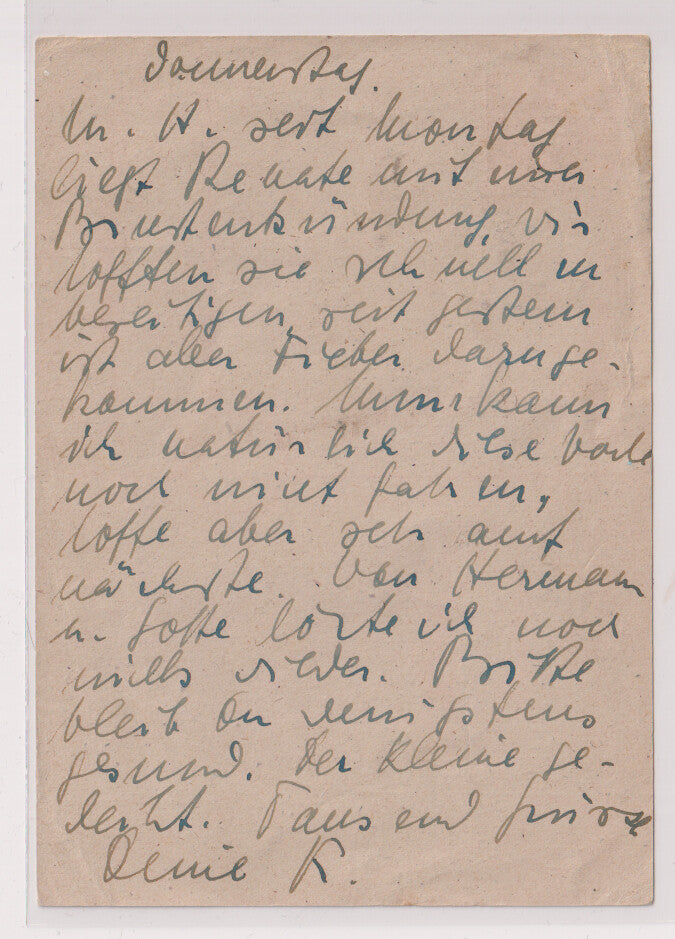 Donnerstag.
M. H. seit Montag
liegt Renate mit einer
Brustentzündung, wir
hofften sie schnell zu
beseitigen, seit gestern
ist aber Fieber dazuge-
kommen. Nun kann
ich natürlich diese Woche
noch nicht fahren,
hoffe aber sehr auf
nächste. Von Hermann
u. Lotte hörte ich noch
nichts wieder. Bitte
bleib Du wenigstens
gesund. Der Kleine ge-
deiht. Tausend Grüsse
Deine K.